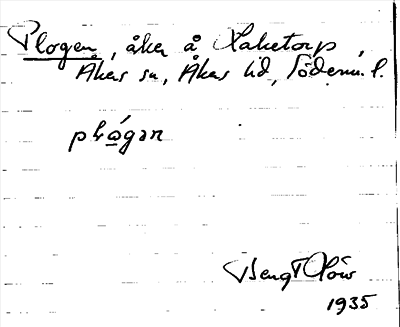 Plogen, åker å Laketorp,
Åkers sn, Åkers hd, Söderm. l.
plɷ́gən
Bengt Löw
1935